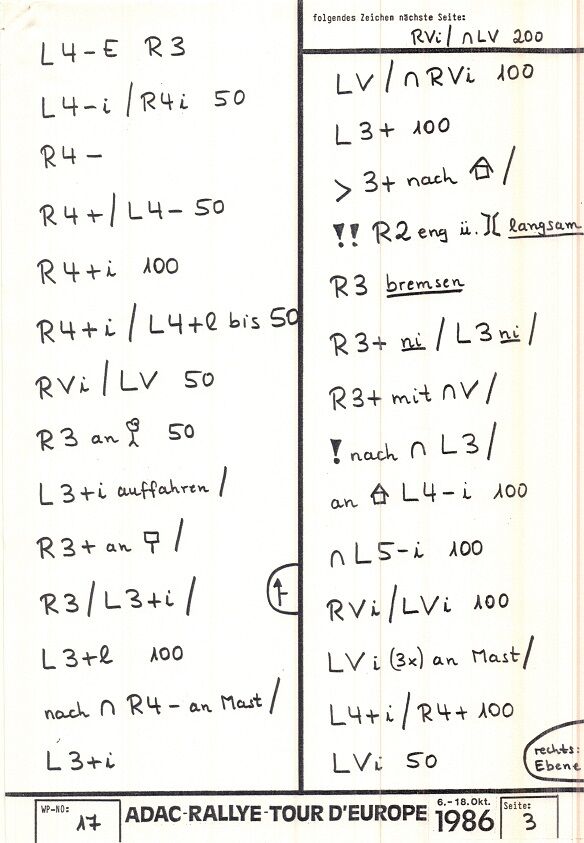 L4-E R3
L4-i / R4i 50
R4-
R4+ / L4- 50
R4+i 100
R4+i / L4+l bis 50
RVi / LV 50
R3 an 50
L3+i auffahren /
R3+ an /
R3 / L3+i /
L3+l 100
nach ∩ R4- an Mast /
L3+i
folgendes Zeichen nächste Seite:
RVi / ∩LV 200
LV / ∩ RVi 100
L3+ 100
> 3+ nach /
!! R2 eng ü. ][ langsam
R3 bremsen
R3+ ni / L3 ni /
R3+ mit ∩V /
! nach ∩ L3 /
an L4-i 100
∩ L5-i 100
RVi / LVi 100
LVi (3x) an Mast /
L4+i / R4+ 100
LVi 50
rechts:
Ebene
WP-NO: 17
ADAC-RALLYE-TOUR D'EUROPE
6.-18.Okt.
1986
Seite:
3